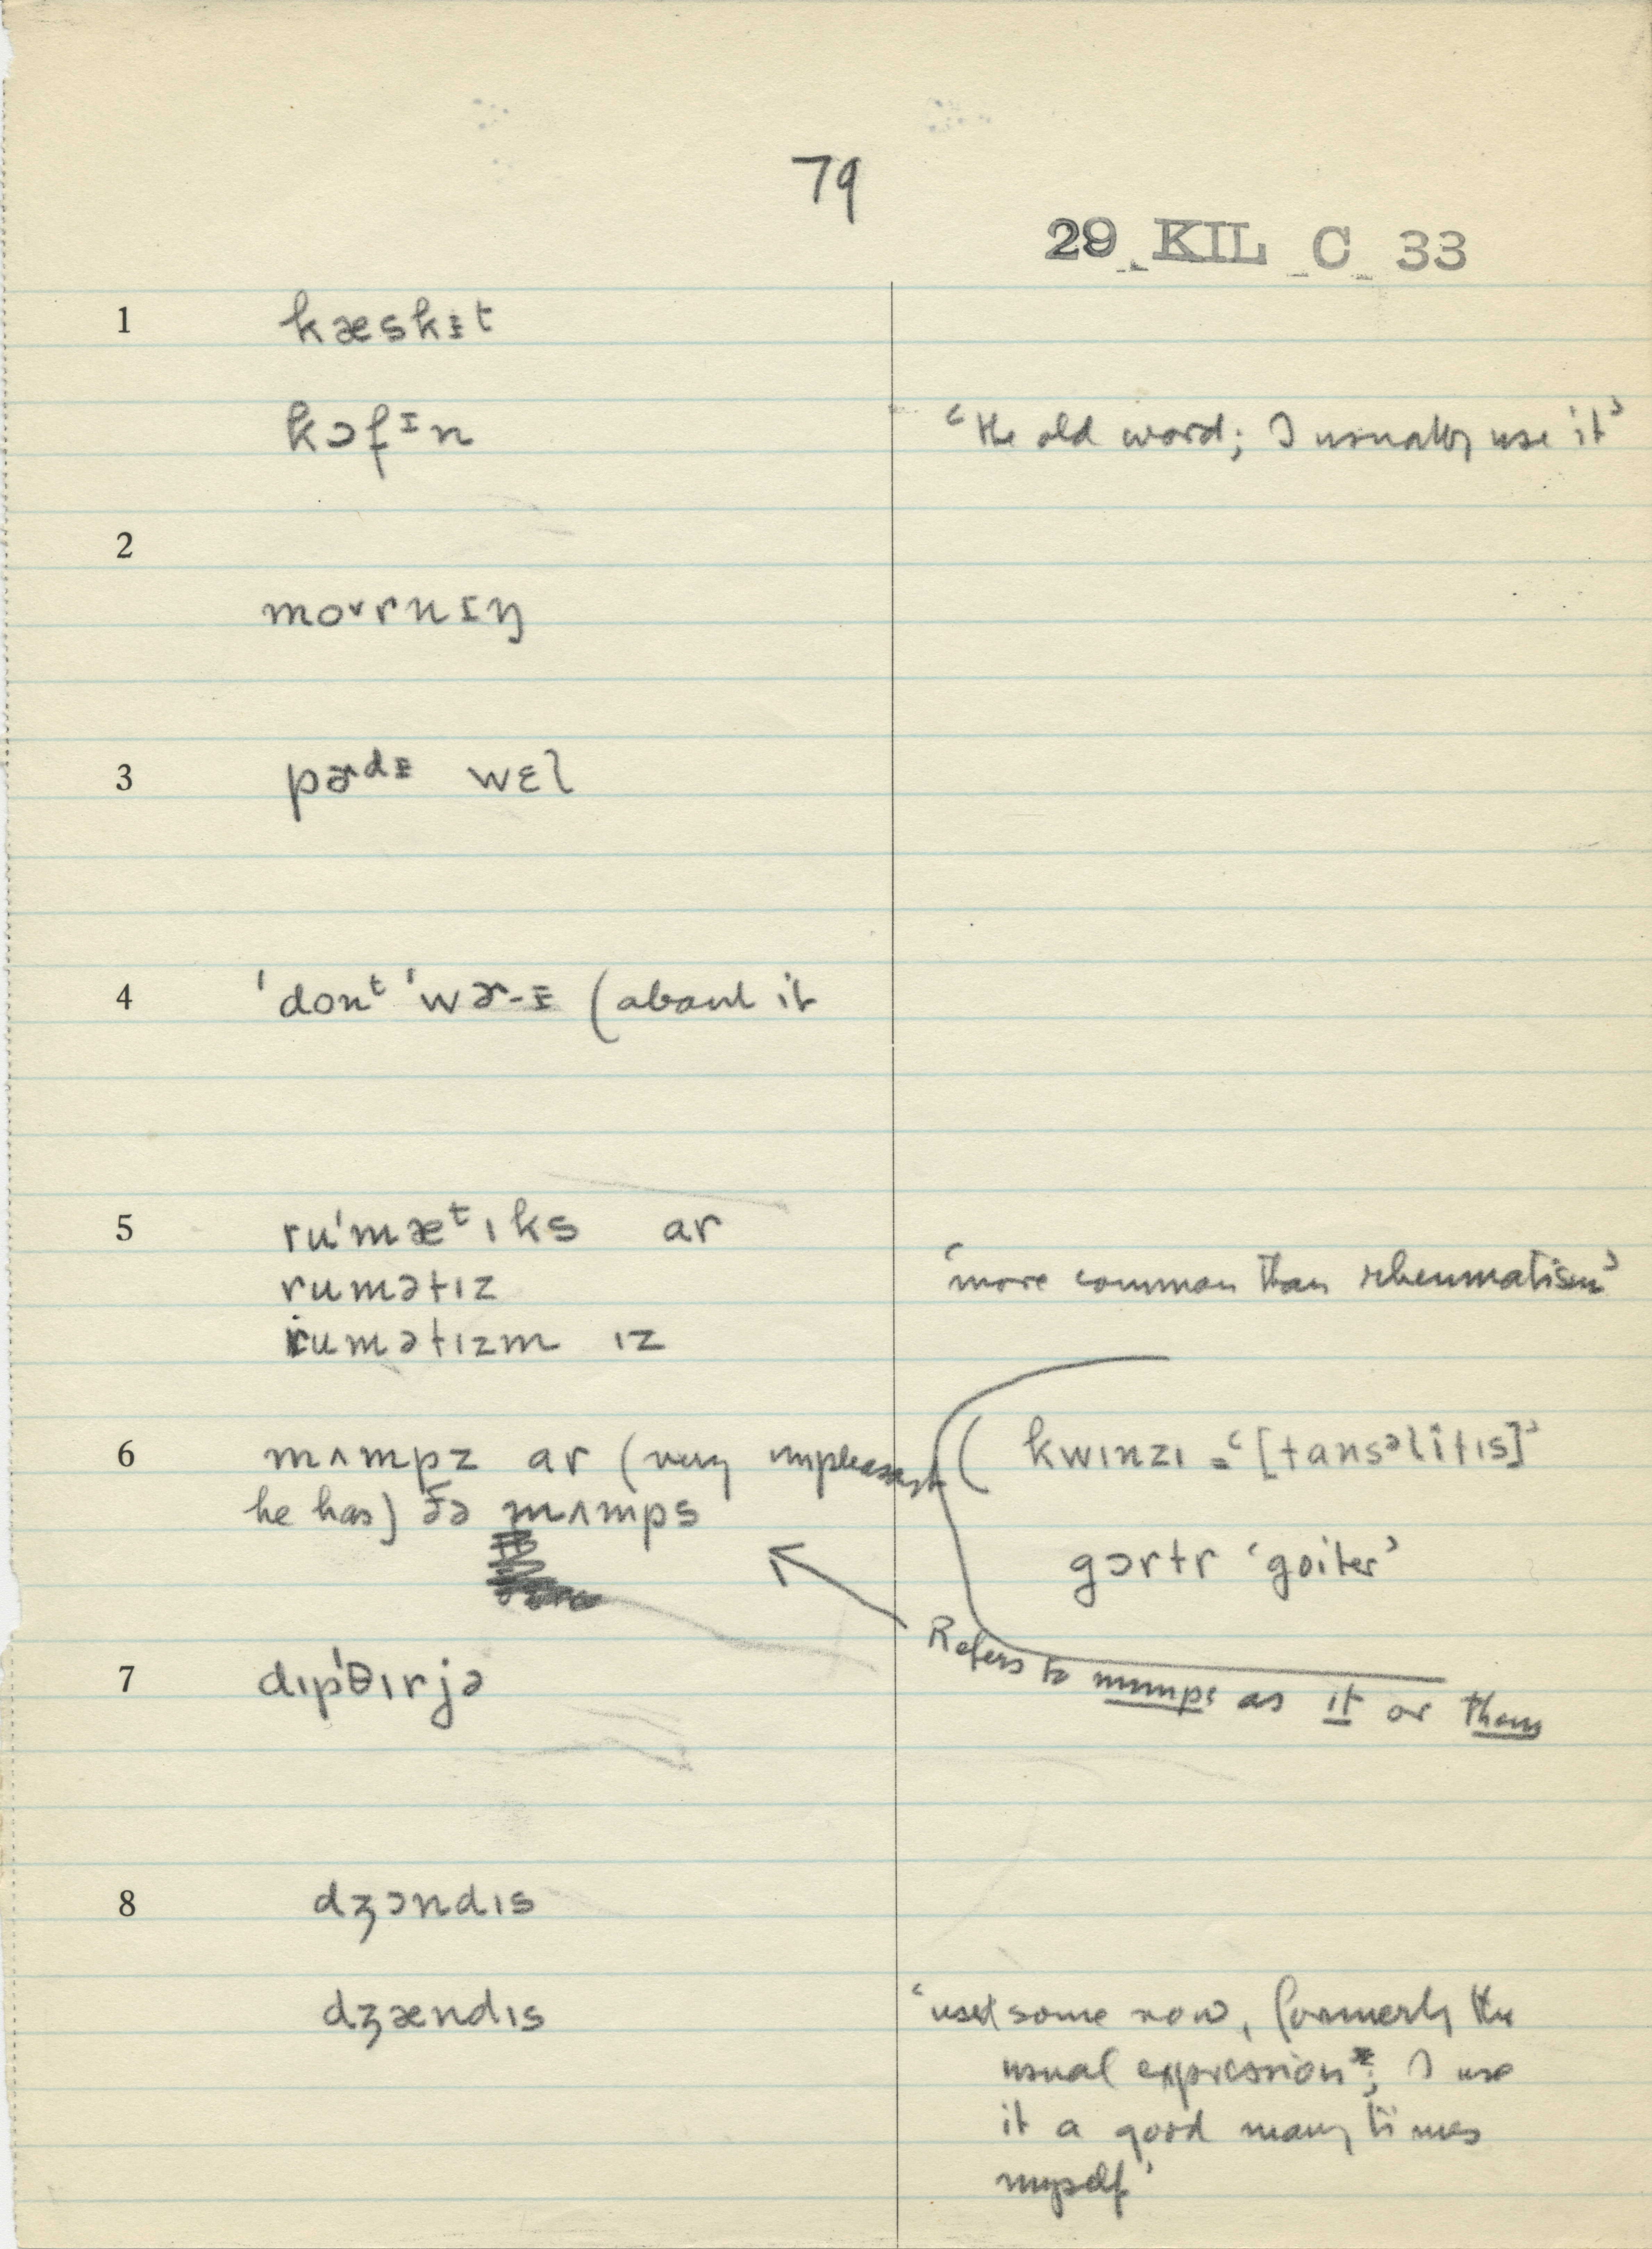 79
29 KIL C 33
1 kæskɪ̵t
kɔfɪn ‘the old word; I usually use it’
2
moˑrnɪŋ
3 pɚdɪ̵ wɛl
4 ˈdonᵗ ˈwɚ-ɪ̵ (about it
5 ruˈmæᵗɪks ar
rumətɪz ‘more common than rheumatism’
rumətɪzm ɪz
6 mʌmpz ar (very unpleasant ( kwɪnzɪ = ‘[tansəlitɪs]’
he has) ðə mʌmps
gɔrtr ‘goiter’
Refers to mumps as it or them
7 dɪpˈθɪrjə
8 dʒɔndɪs
dʒændɪs ‘used some now, formerly the
usual expression; I use
it a good many times
myself’